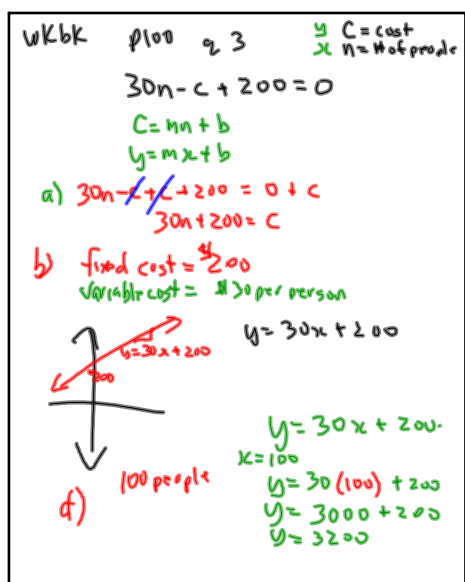 WKBK P100 q 3
y C = cost
x n = # of people
30n - c + 200 = 0
C = mn + b
y = mx + b
a) 30n - c + c + 200 = 0 + c
30n + 200 = C
b) fixed cost = $200
variable cost = $30 per person
y = 30x + 200
y = 30x + 200
200
y = 30x + 200.
x = 100
d) 100 people
y = 30(100) + 200
y = 3000 + 200
y = 3200